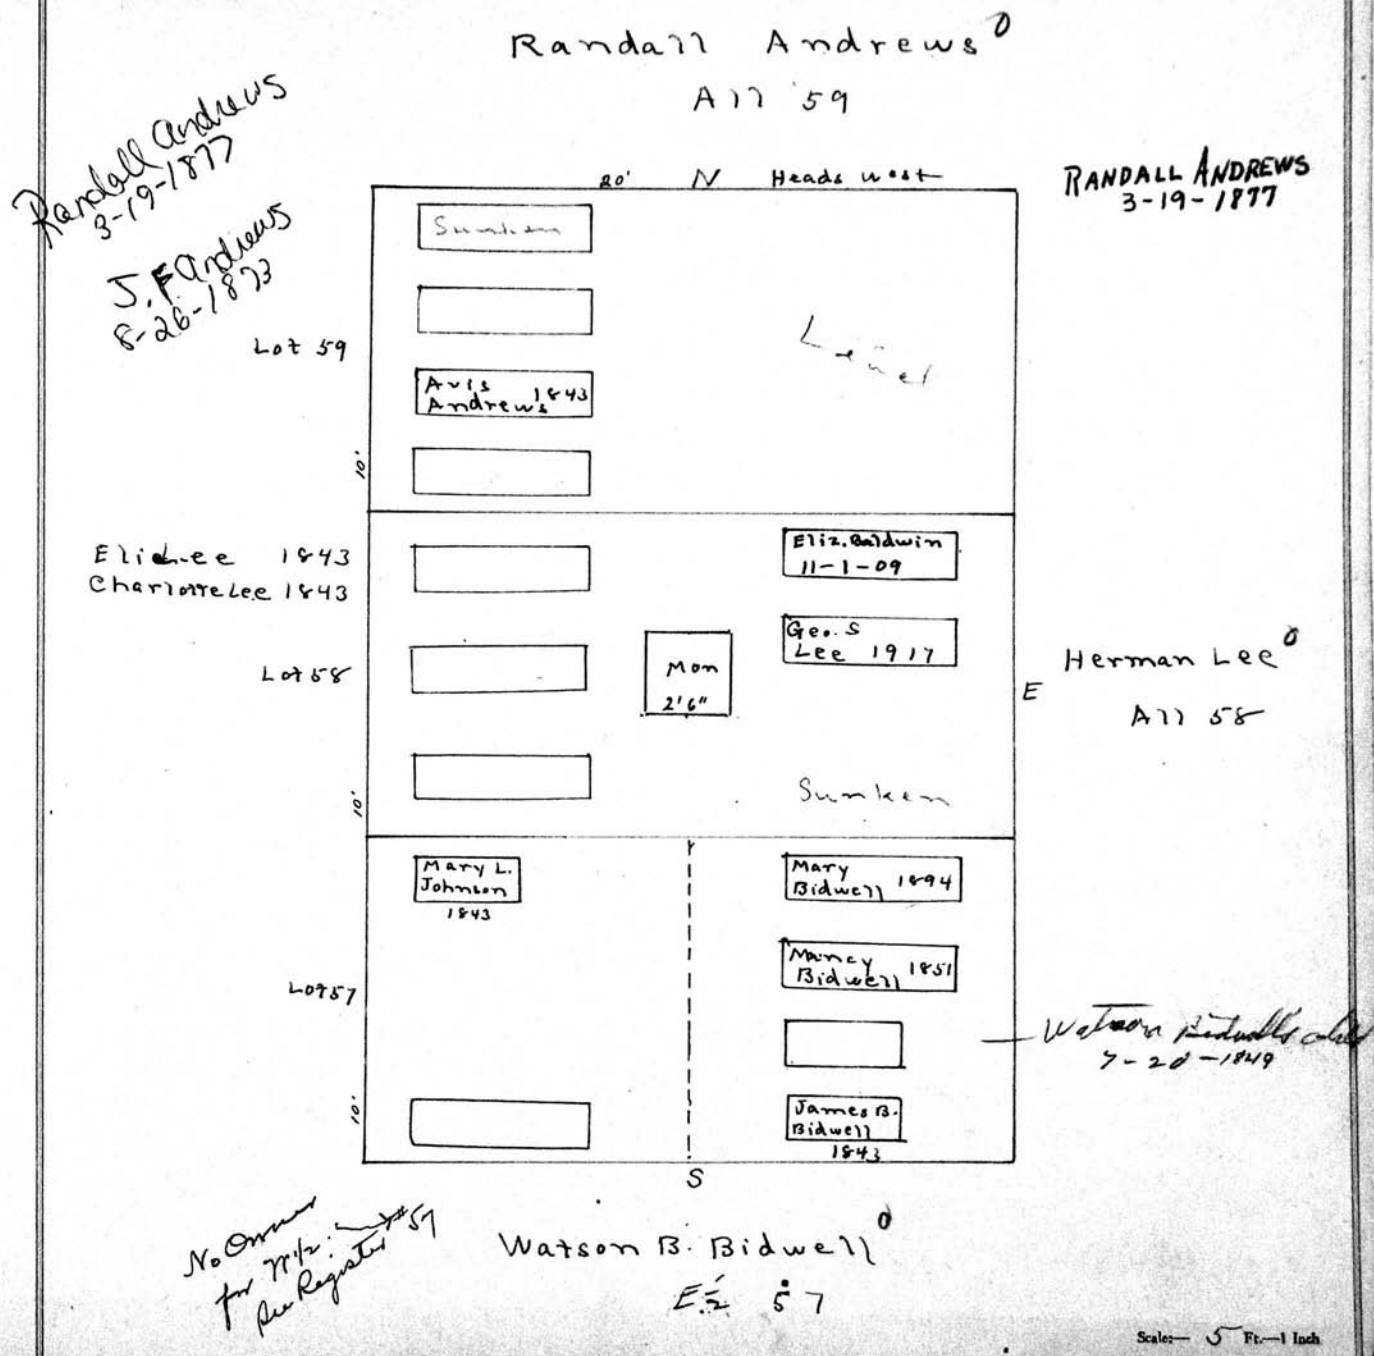 Randall Andrews
All 59
Randall Andrews
3-19-1877
J. F. Andrews
8-26-1873
20' N Heads west
RANDALL ANDREWS
3-19-1877
Sunken
Lot 59
Avis
Andrews 1843
10'
Level
Eli Lee 1843
Charlotte Lee 1843
Eliz. Baldwin
11-1-09
Geo. S
Lee 1917
Lot 58
Mon
2'6"
E
Herman Lee
All 58
Sunken
10'
Mary L.
Johnson
1843
Mary
Bidwell 1894
Lot 57
Nancy
Bidwell 1851
Watson Bidwell's
7-20-1849
James B.
Bidwell
1843
10'
S
No Owner
for W 1/2
See Register #57
Watson B. Bidwell
E ½ 57
Scale:— 5 Ft.—1 Inch